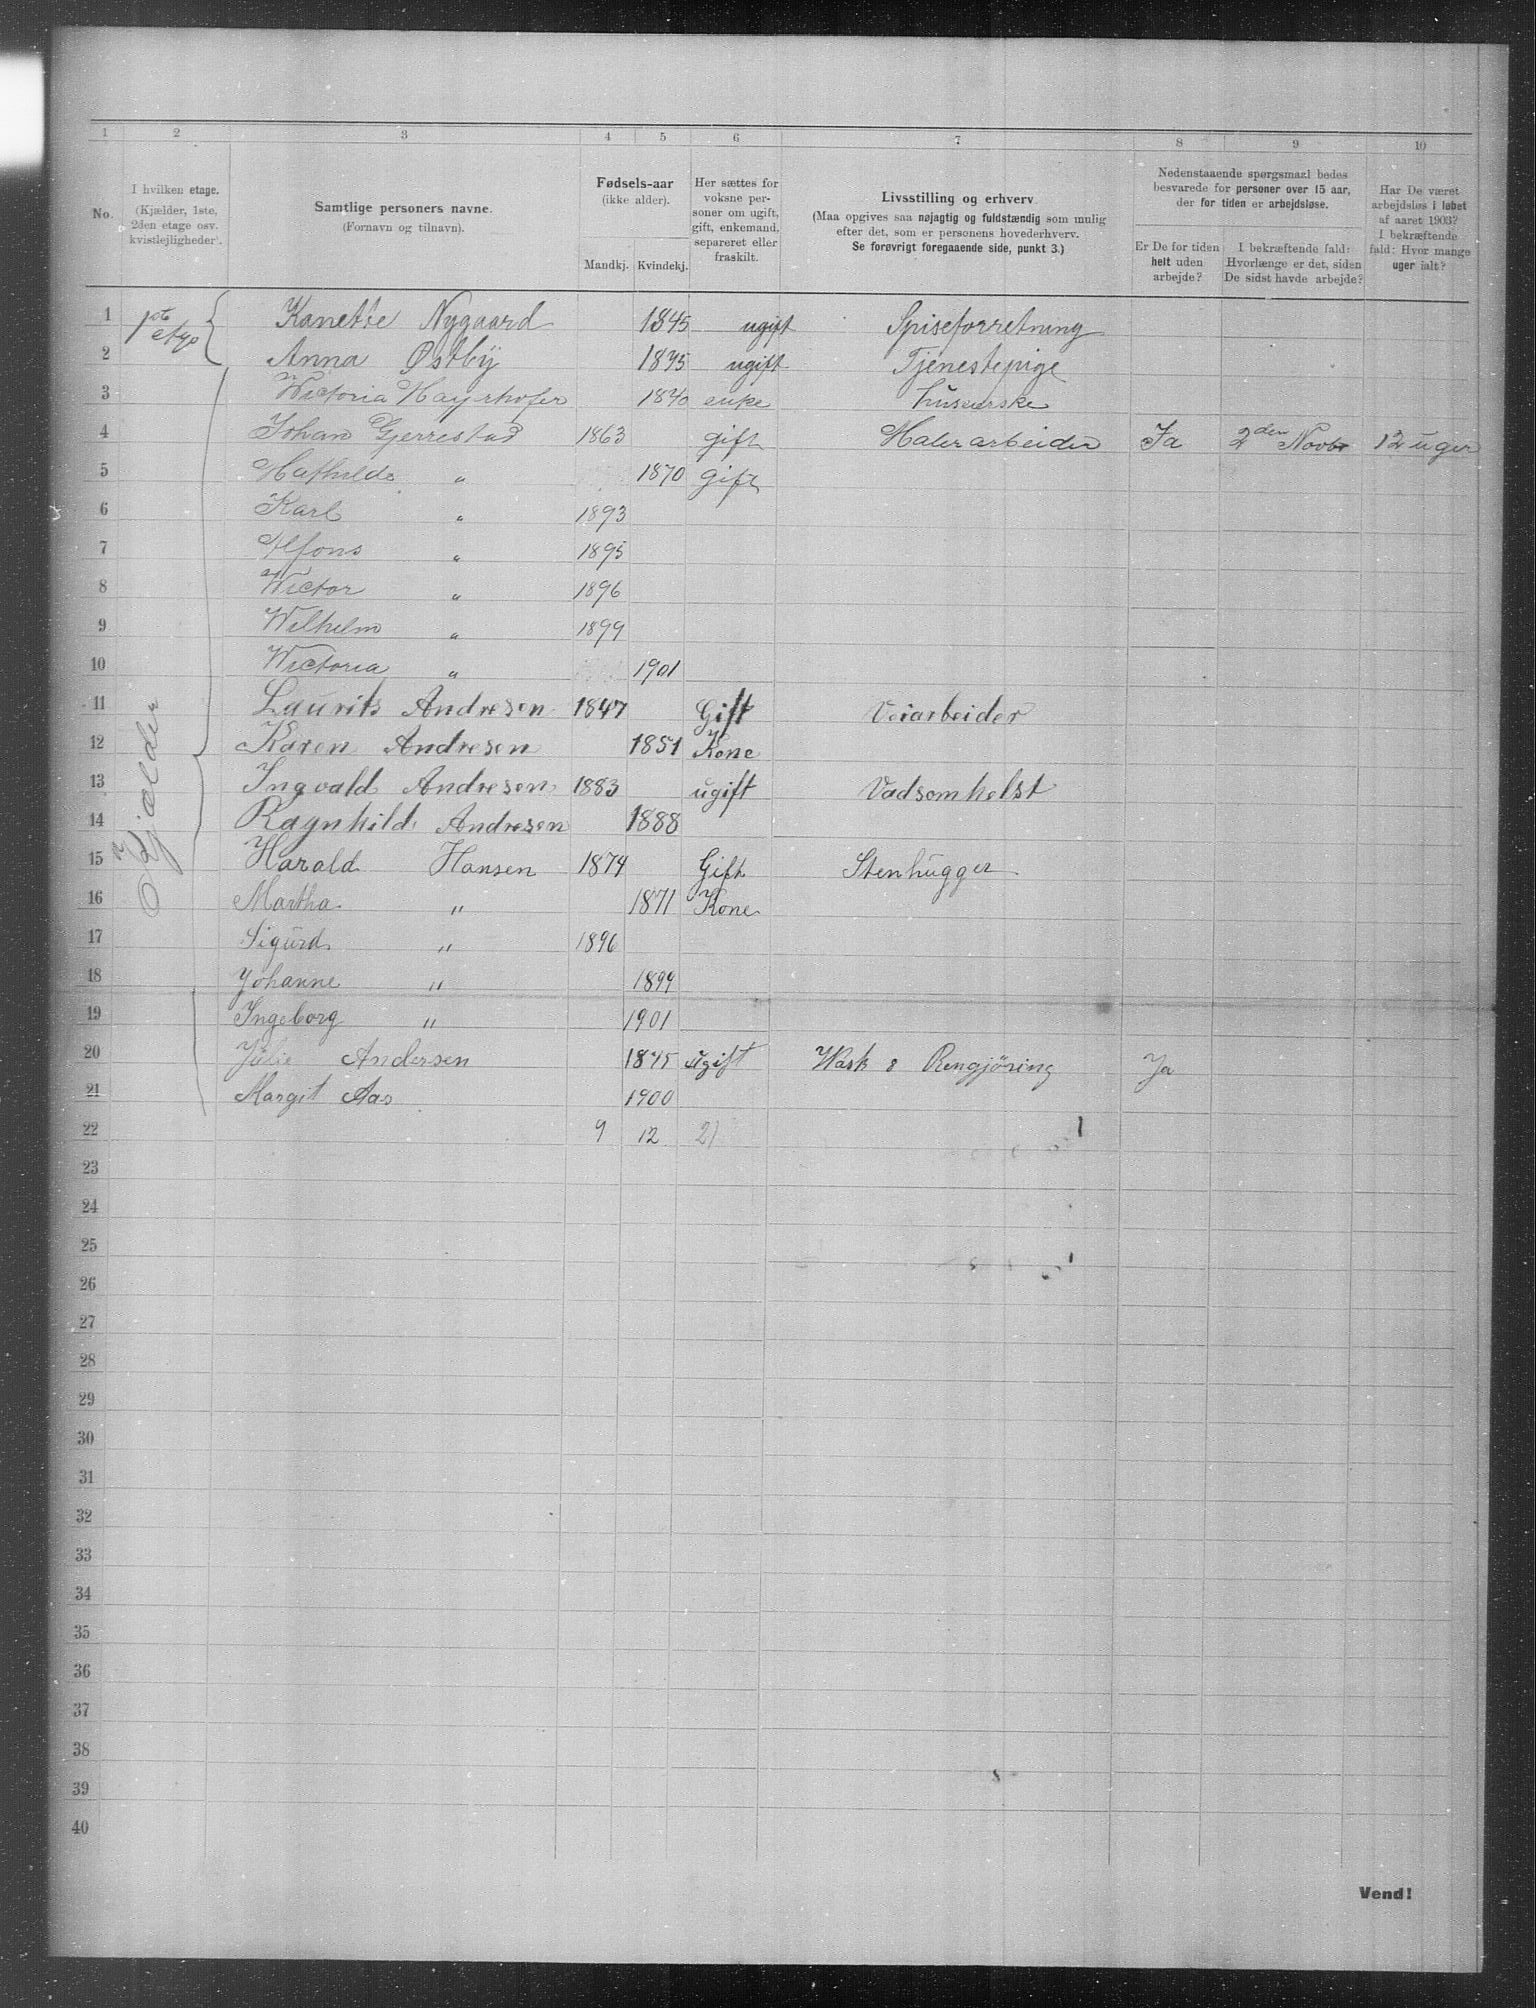 1 2 3 4 5 6 7 8 9 10
No.
I hvilken etage. (Kjælder, 1ste, 2den etage osv. kvistlejligheder).
Samtlige personers navne. (Fornavn og tilnavn).
Fødsels-aar (ikke alder). Mandkj. Kvindekj.
Her sættes for voksne personer om ugift, gift, enkemand, separeret eller fraskilt.
Livsstilling og erhverv. (Maa opgives saa nøjagtig og fuldstændig som mulig efter det, som er personens hovederhverv. Se forøvrigt foregaaende side, punkt 3.)
Nedenstaaende spørgsmaal bedes besvarede for personer over 15 aar, der for tiden er arbejdsløse.
Er De for tiden helt uden arbejde?
I bekræftende fald: Hvorlænge er det, siden De sidst havde arbejde?
Har De været arbejdsløs i løbet af aaret 1903? I bekræftende fald: Hvor mange uger ialt?
1 1ste etage Kanette Nygaard 1845 ugift Spiseforretning
2 Anna Østby 1875 ugift Tjenestepige
Kjælder
3 Wictoria Mayrhofer 1840 enke huseierske
4 Johan Gjerrestad 1863 gift Malerarbeider Ja 2den Novbr 12 uger
5 Mathilde " 1870 gift
6 Karl " 1893
7 Alfons " 1895
8 Wictor " 1896
9 Wilhelm " 1899
10 Wictoria " 1901
11 Laurits Andresen 1847 Gift Veiarbeider
12 Karen Andresen 1851 Kone
13 Ingvald Andresen 1883 ugift Vadsomhelst
14 Ragnhild Andresen 1888
15 Harald Hansen 1874 Gift Stenhugger
16 Martha " 1871 Kone
17 Sigurd " 1896
18 Johanne " 1899
19 Ingeborg " 1901
20 Julie Andersen 1875 Ugift Wask & Rengjøring Ja
21 Margit Aas 1900
22 9 12 21
23
24
25
26
27
28
29
30
31
32
33
34
35
36
37
38
39
40
Vend!